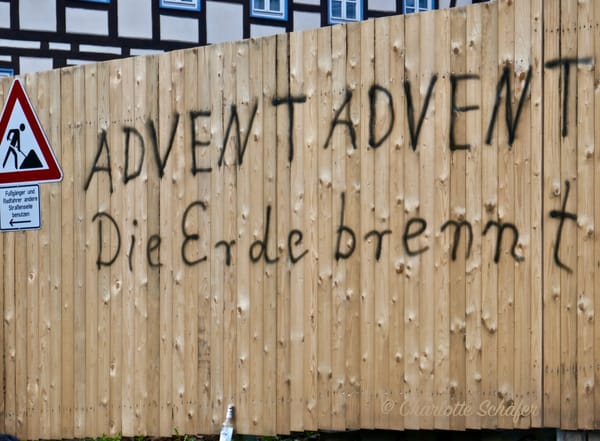 ADVENT ADVENT
Die Erde brennt
Fußgänger und
Radfahrer andere
Straßenseite
benutzen
© Charlotte Schäfer